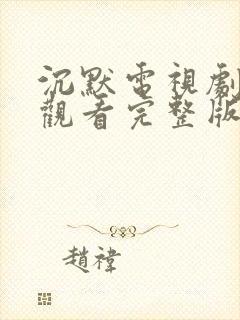 沉默電視劇
觀看完整版
趙禕